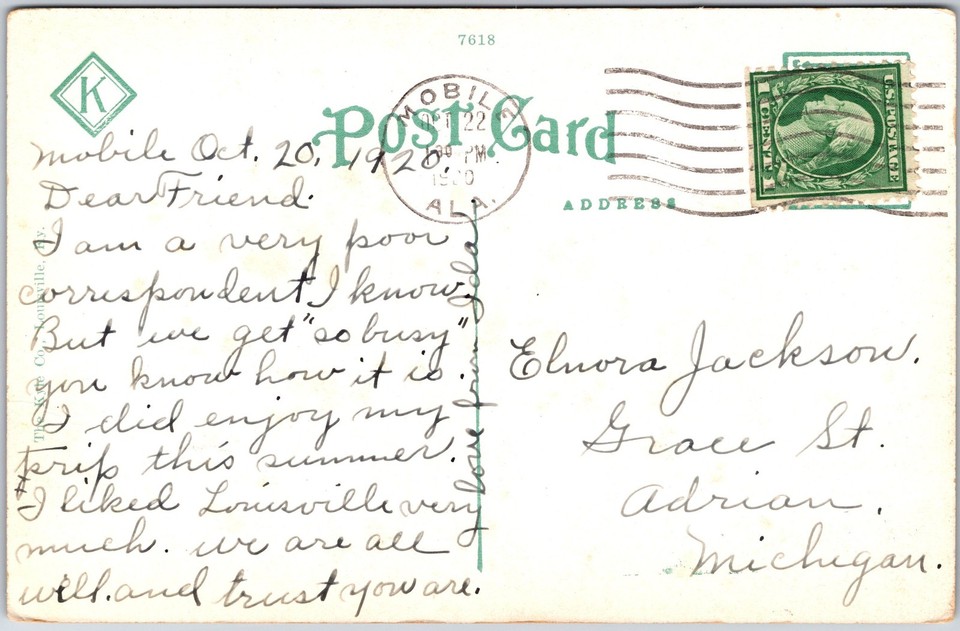 7618
K
Post Card
MOBILE
OCT 22
PM
1920
ALA.
U.S. POSTAGE
1 CENT 1
ADDRESS
The Kyle Co., Louisville, Ky.
Mobile Oct. 20, 1920.
Dear Friend.
I am a very poor
correspondent I know.
But we get "so busy"
you know how it is.
I did enjoy my
trip this summer.
I liked Louisville very
much. we are all
well. and trust you are.
love from Ida
Elnora Jackson.
Grace St.
Adrian,
Michigan.